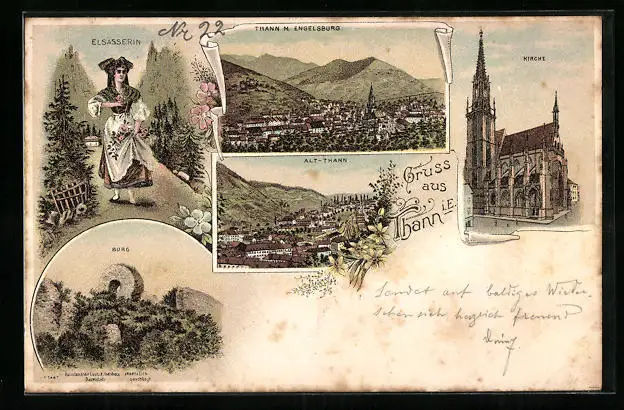 Nr 22
ELSÄSSERIN
THANN M. ENGELSBURG.
KIRCHE
ALT-THANN
Gruss
aus
Thann i.E.
BURG
Sendet auf baldiges Wieder-
sehen sich herzlich freuend
gesetzlich
geschützt